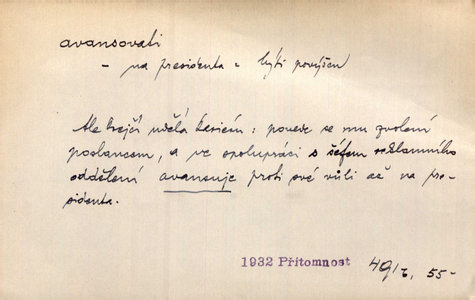 avansovati
– na presidenta = býti povýšen
Ale krejčí udělá kariéru: povede se mu zvolení
poslancem, a ve spolupráci s šéfem reklamního
oddělení avansuje proti své vůli až na pre-
sidenta.
1932 Přítomnost 49/6, 55-